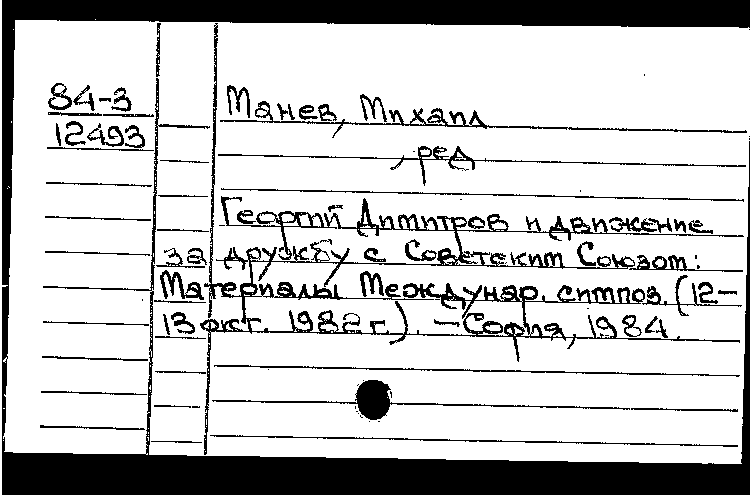 84-3
12493
Манев, Михаил
, ред
Георгий Димитров и движение
за дружбу с Советским Союзом:
Материалы Междунар. симпоз. (12-
13 окт. 1982 г.). - София, 1984.